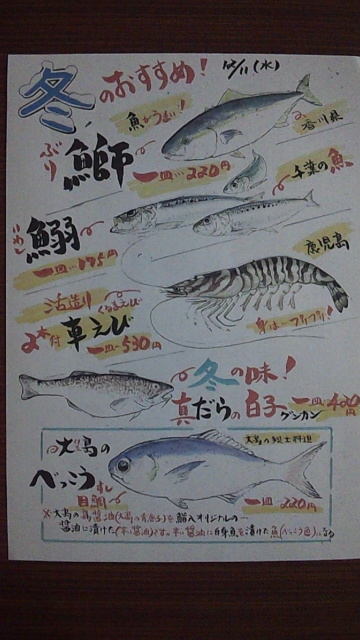 冬のおすすめ! 12/11(水)
魚がうまい!
香川県
ぶり
鰤 一皿…220円
千葉の魚
いわし
鰯
一皿…175円
鹿児島
活造り くるまえび
2本付 車えび
一皿…530円
身は…プリプリ!
冬の味!
真だらの白子 グンカン 一皿…420円
大島の郷土料理
大島の
べっこうずし
目鯛
一皿…220円
※大島の島醤油(大島の青唐辛子)を鮨入オリジナルの
醤油に漬けた(辛い醤油)です。辛い醤油に白身魚を漬けた魚(べっこう色)になる